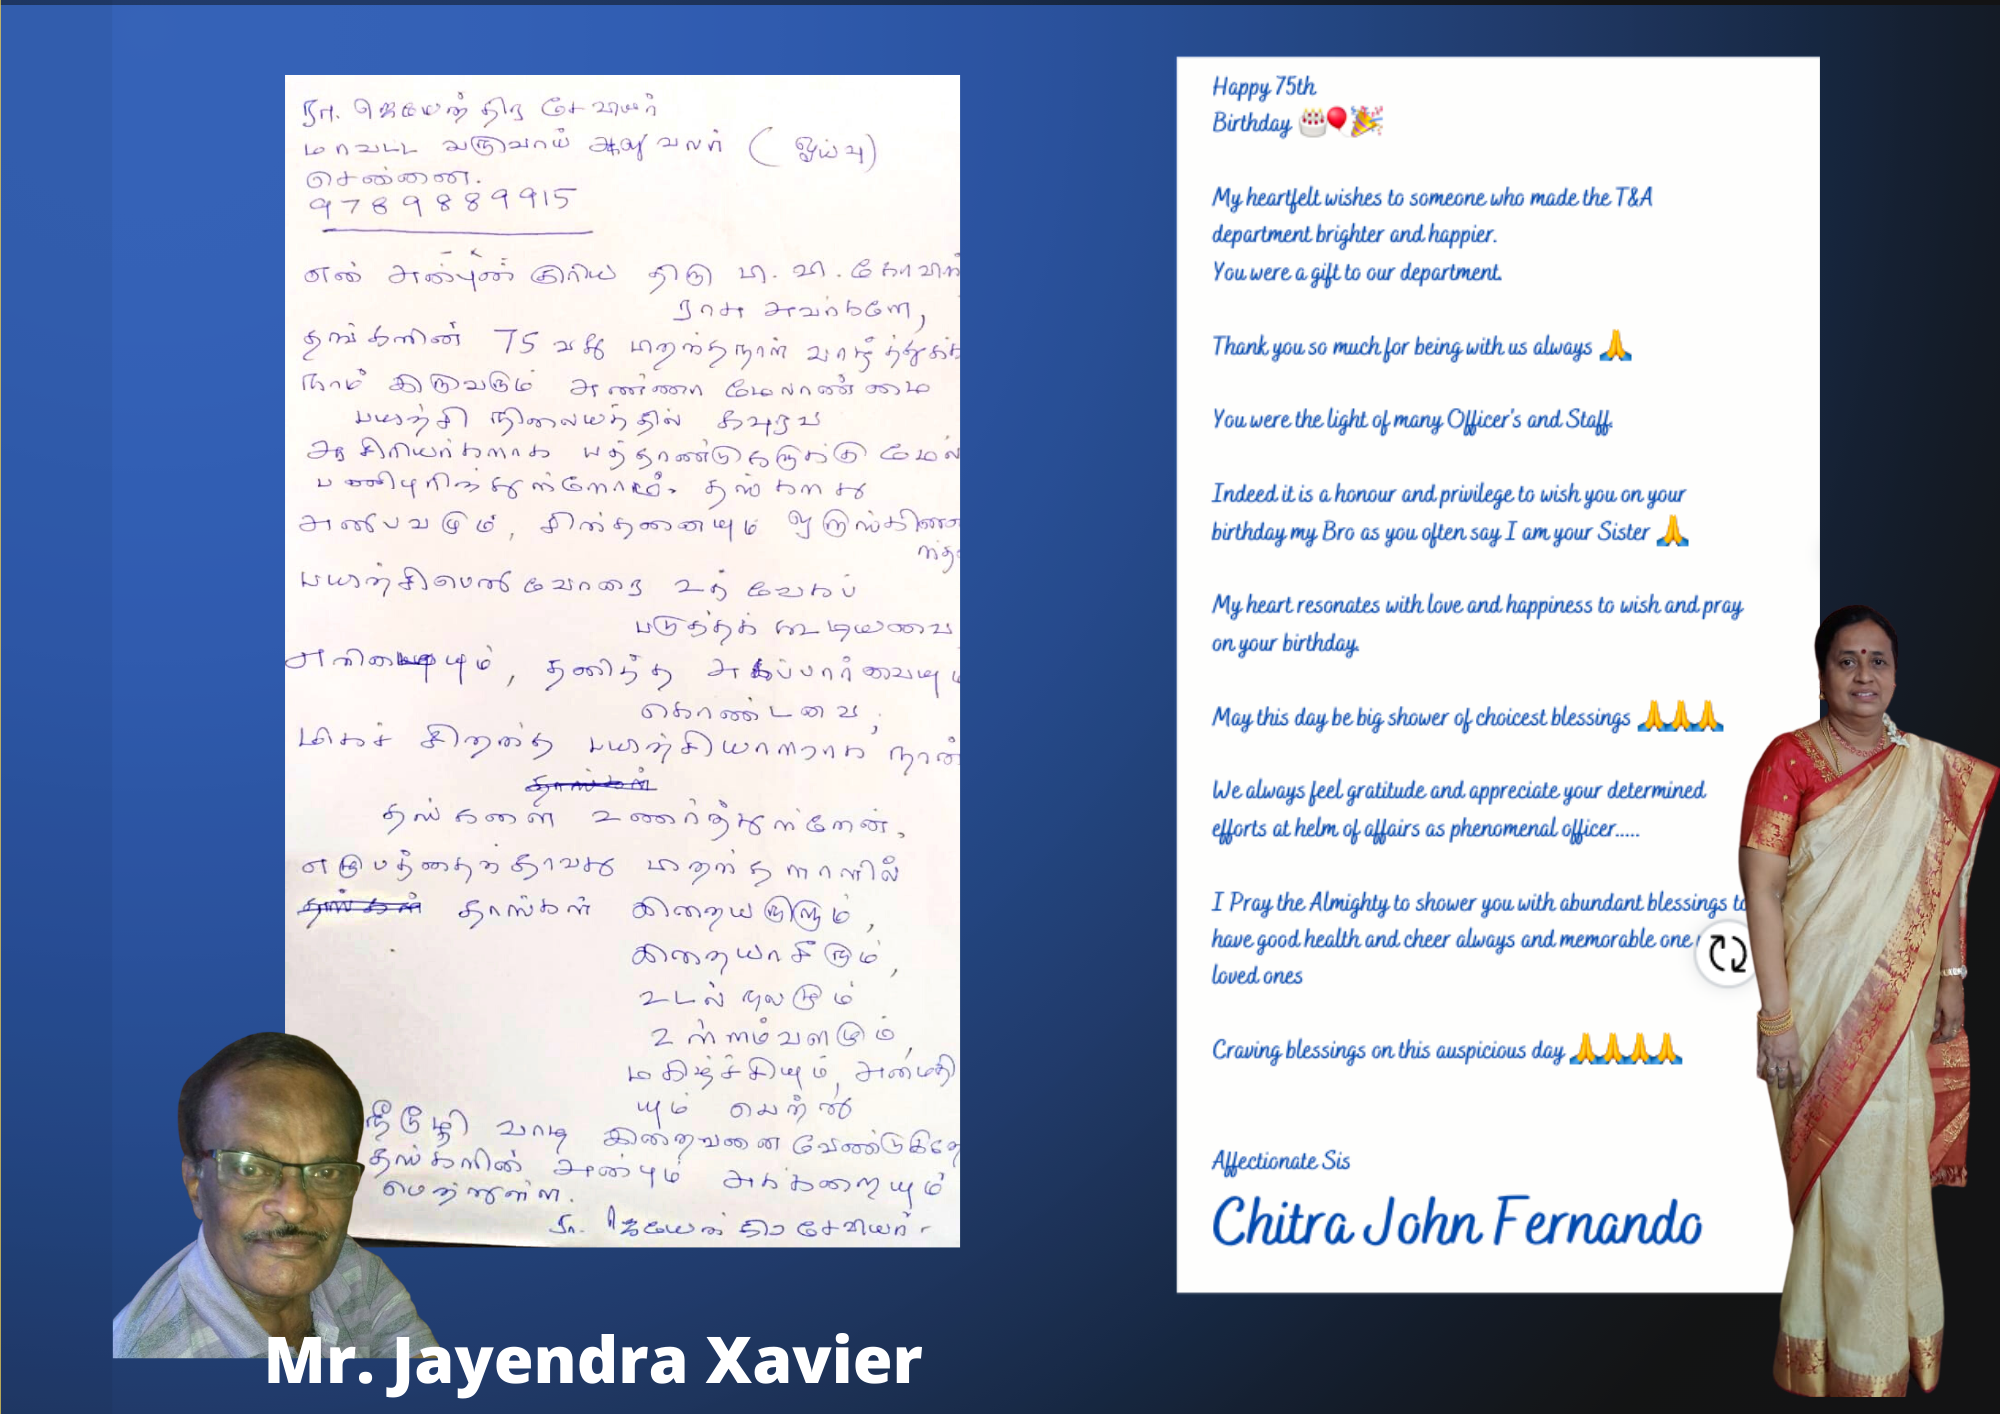 நா. ஜெயேந்திர சேவியர்
மாவட்ட வருவாய் அலுவலர் ( ஓய்வு)
சென்னை.
9789889915
என் அன்புக்குரிய திரு பி. வி. கோவிந்
ராசு அவர்களே,
தங்களின் 75 வது பிறந்தநாள் வாழ்த்துக்க
நாம் இருவரும் அண்ணா மேலாண்மை
பயிற்சி நிலையத்தில் கவுரவ
ஆசிரியர்களாக பத்தாண்டுகளுக்கு மேல்
பணிபுரிந்துள்ளோம். தங்களது
அனுபவமும், சிந்தனையும்
பயிற்சிபெறுவோரை உத்வேகப்
படுத்தக் கூடியவை
தனித்த அகப்பார்வையு
கொண்டவை,
மிகச் சிறந்த பயிற்சியாளராக நான்
தங்களை உணர்ந்துள்ளேன்.
எழுபத்தைந்தாவது பிறந்தநாளில்
தாங்கள் இறையருளும்,
இறையாசீரும்,
உடல் நலமும்
உள்ளம்வளமும்,
மகிழ்ச்சியும், அமைதி
யும் பெற்று
நீடூழி வாழ இறைவனை வேண்டுகிறே
தங்களின் அன்பும் அக்கறையும்
பெற்றுள்ள.
நா. ஜெயேந்திர சேவியர்.
Mr. Jayendra Xavier
Happy 75th
Birthday 🎂🎈🎉
My heartfelt wishes to someone who made the T&A
department brighter and happier.
You were a gift to our department.
Thank you so much for being with us always 🙏
You were the light of many Officer's and Staff.
Indeed it is a honour and privilege to wish you on your
birthday my Bro as you often say I am your Sister 🙏
My heart resonates with love and happiness to wish and pray
on your birthday.
May this day be big shower of choicest blessings 🙏🙏🙏
We always feel gratitude and appreciate your determined
efforts at helm of affairs as phenomenal officer.....
I Pray the Almighty to shower you with abundant blessings to
have good health and cheer always and memorable one
loved ones
Craving blessings on this auspicious day 🙏🙏🙏🙏
Affectionate Sis
Chitra John Fernando